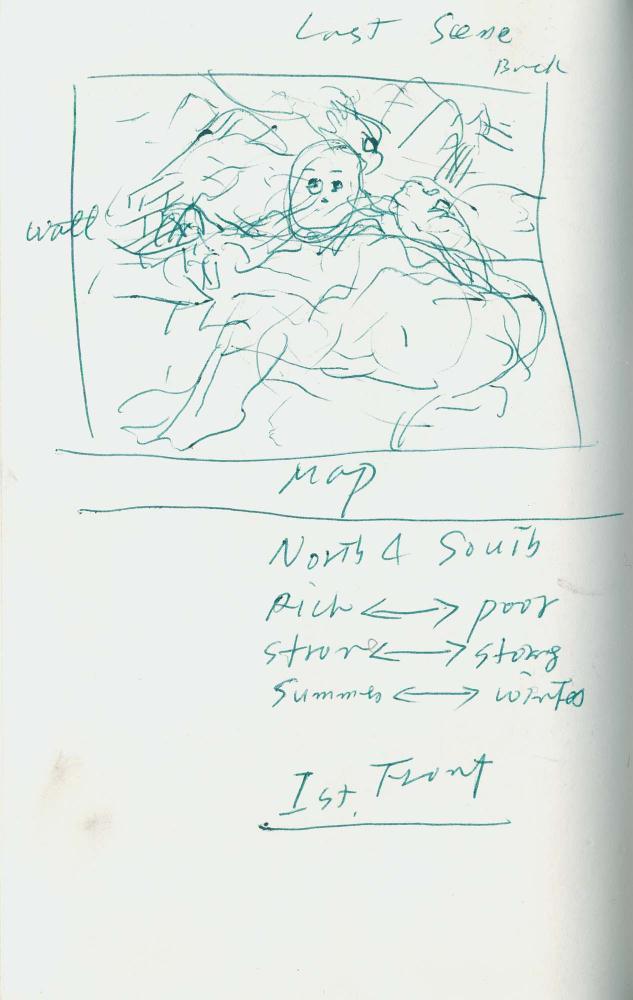 Last Scene
Back
wall
Map
North & South
Rich <-> poor
strong <-> strong
Summer <-> winter
1st. Front